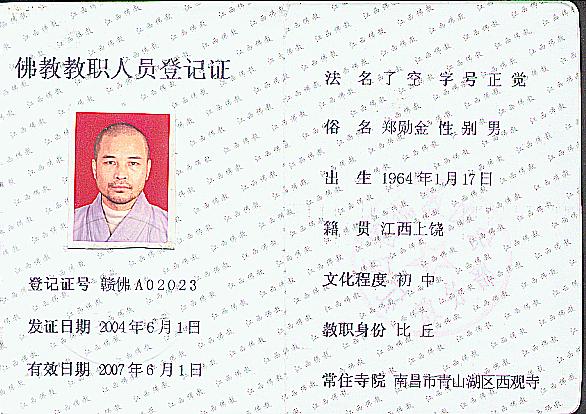 佛教教职人员登记证
登记证号 赣佛A02023
发证日期 2004年6月1日
有效日期 2007年6月1日
法 名 了 空 字 号 正 觉
俗 名 郑勋金 性 别 男
出 生 1964年1月17日
籍 贯 江西上饶
文化程度 初 中
教职身份 比 丘
常住寺院 南昌市青山湖区西观寺